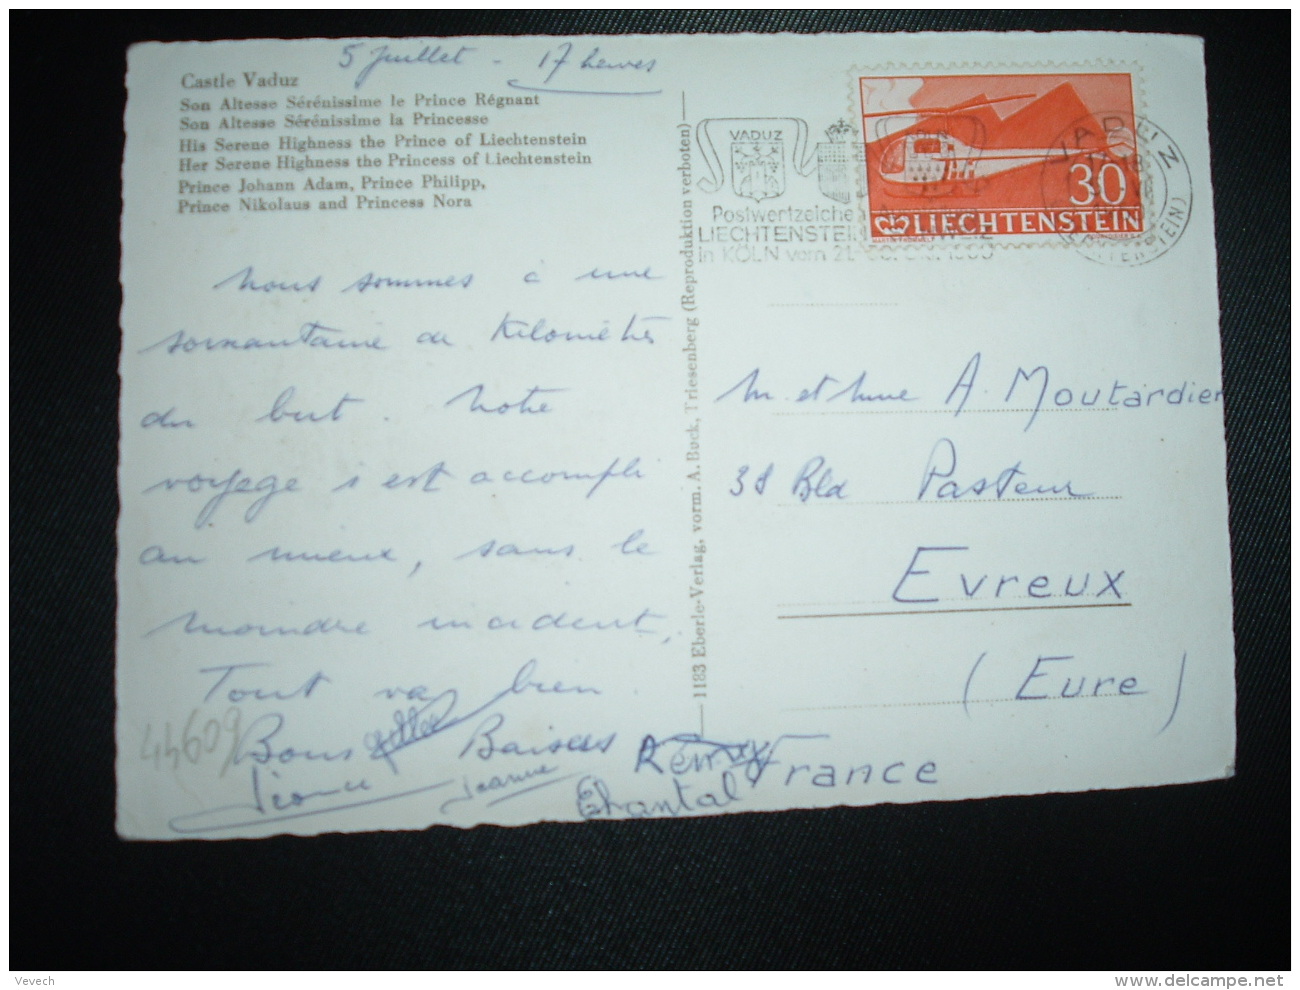 5 Juillet - 17 heures
Castle Vaduz
Son Altesse Sérénissime le Prince Régnant
Son Altesse Sérénissime la Princesse
His Serene Highness the Prince of Liechtenstein
Her Serene Highness the Princess of Liechtenstein
Prince Johann Adam, Prince Philipp,
Prince Nikolaus and Princess Nora
Nous sommes à une
soixantaine de Kilomètres
du but. Notre
voyage s'est accompli
au mieux, sans le
moindre incident,
Tout va bien.
Bons Baisers
Jeanne
Rémy
Chantal
44609
1183 Eberle-Verlag, vorm. A. Buck, Triesenberg (Reproduktion verboten)
VADUZ
Postwertzeichen
LIECHTENSTEIN
in KÖLN vom 21.
30
LIECHTENSTEIN
M. et Mme A. Moutardier
38 Bld Pasteur
Evreux
(Eure)
France
Vevech
http://www.delcampe.net